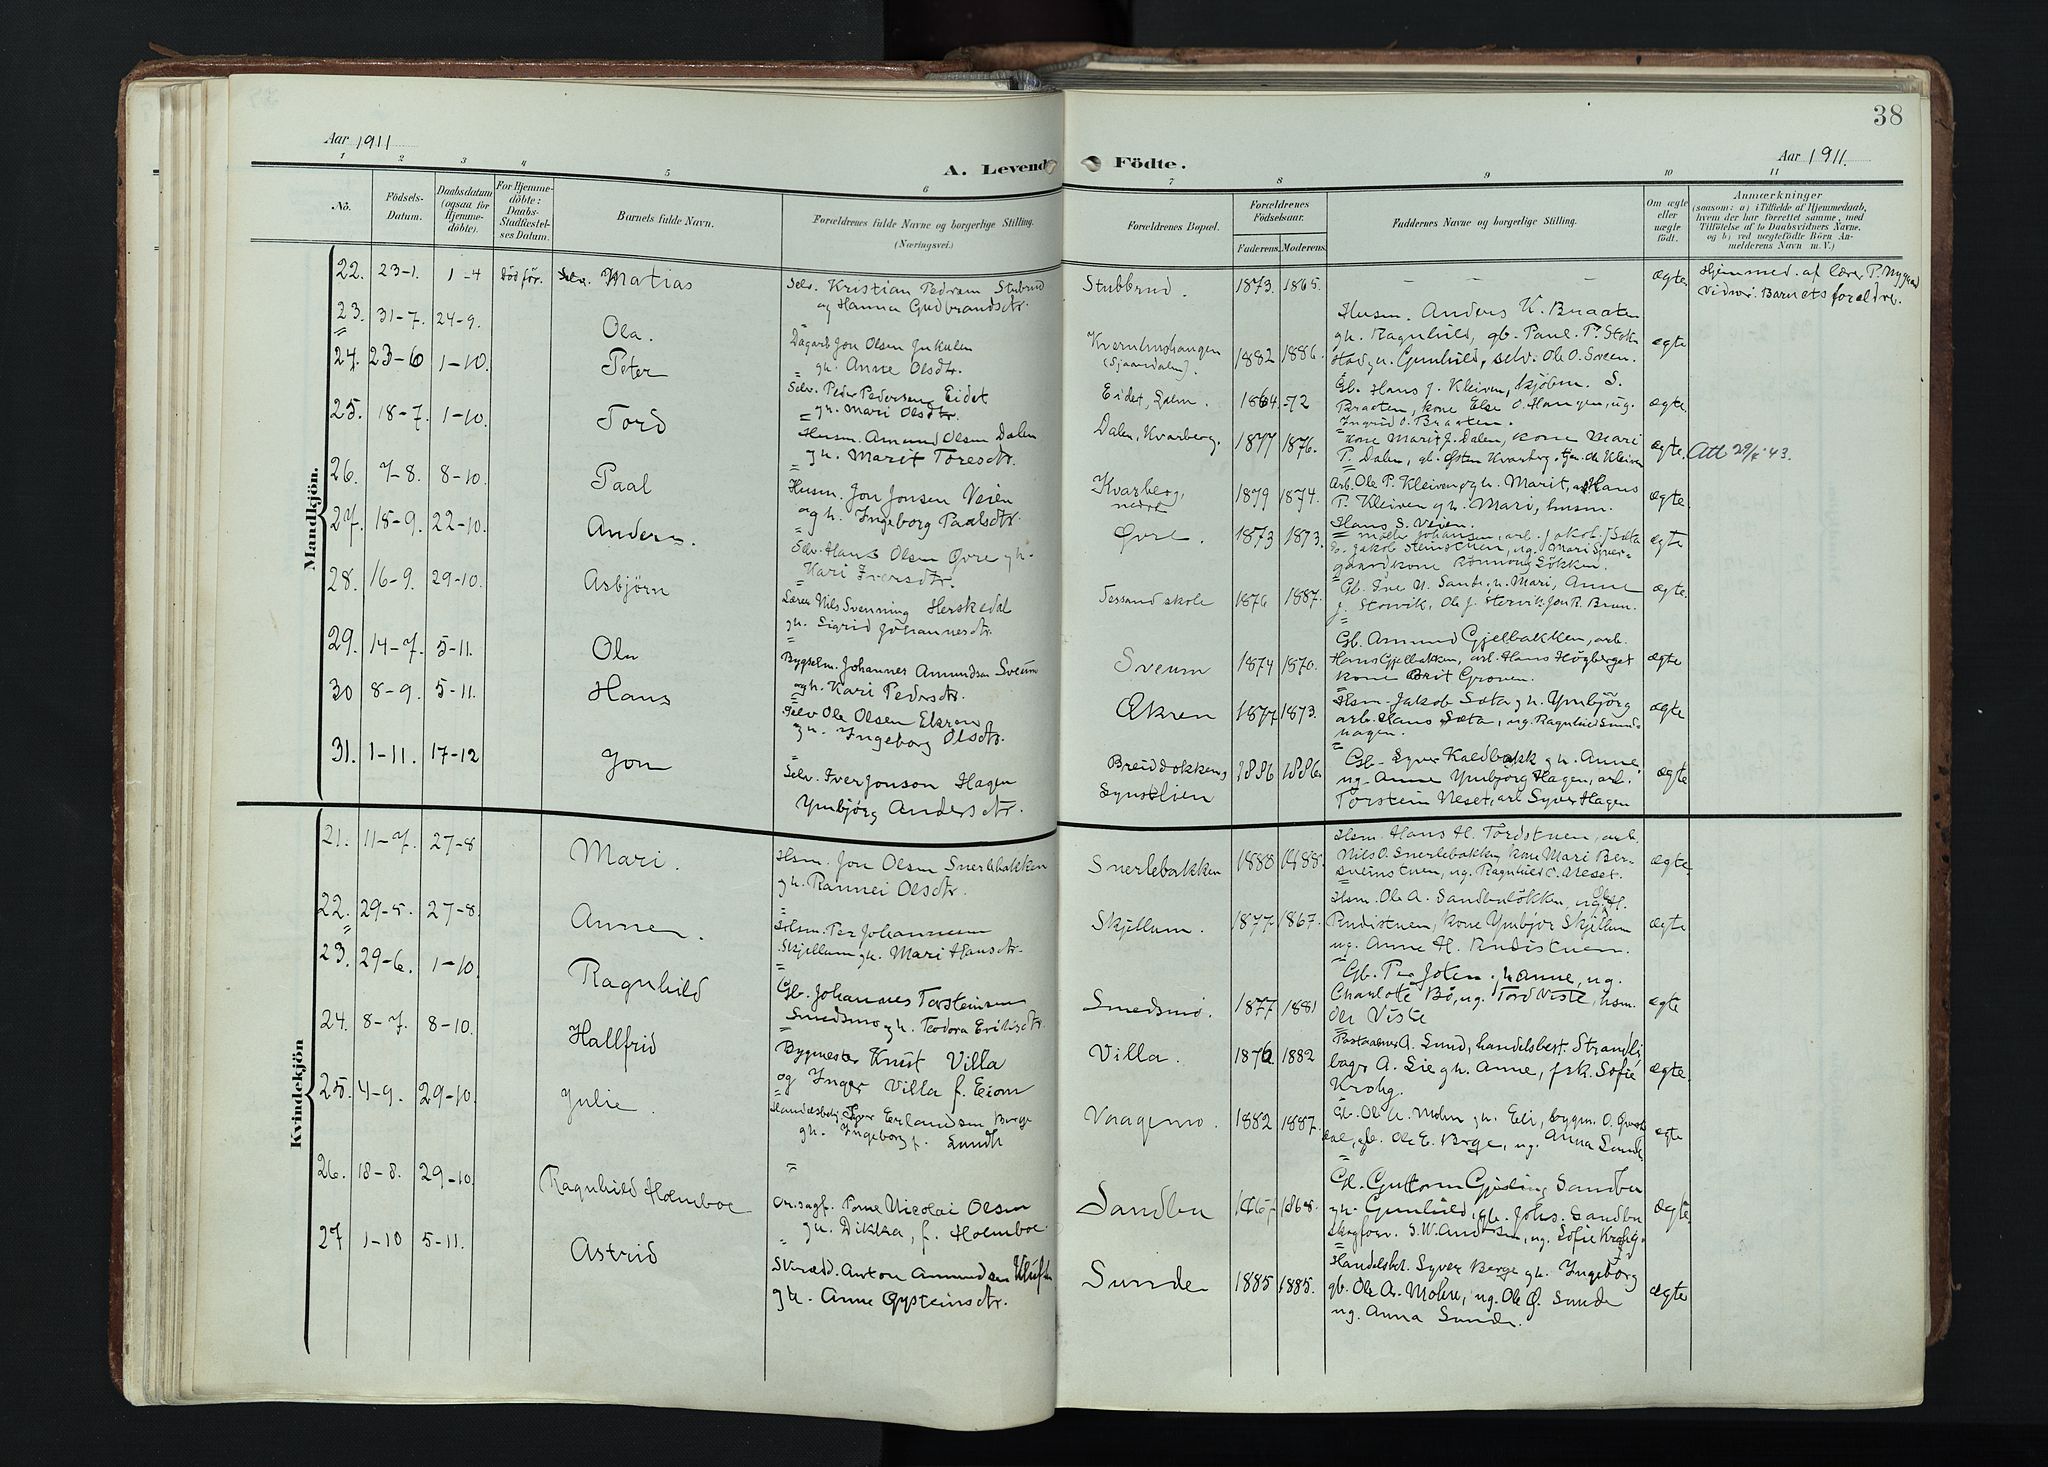 38
Aar 1911
A. Levende Födte.
Aar 1911.
1 2 3 4 5 6 7 8 9 10 11
No.
Fødsels-Datum.
Daabsdatum (ogsaa for Hjemmedöbte).
For Hjemmedöbte: Daabs-Stadfæstelses Datum.
Barnets fulde Navn.
Forældrenes fulde Navne og borgerlige Stilling. (Næringsvei.)
Forældrenes Bopæl.
Forældrenes Födselsaar.
Faderens. Moderens.
Faddernes Navne og borgerlige Stilling.
Om ægte eller uægte födt.
Anmærkninger
(saasom: a) i Tilfælde af Hjemmedaab, hvem der har forrettet samme, med Tilföielse af to Daabsvidners Navne, og b) ved uægtefödte Börn Anmelderens Navn m. V.)
Mandkjön.
22. 23-1. 1-4 död för. Matias
Selv. Kristian Pedersen Stubrud
og Hanna Gudbrandsdtr.
Stubbrud. 1873. 1865. - - - ægte
Hjemmed. af lærer P. Nygaard
Vidner: Barnets forældre.
23. 31-7. 24-9. Ola.
Dagarb Jon Olsen Jukulen
gh. Anne Olsdtr.
Kvernhushaugen (Sjaardalen). 1882 1886.
Husm. Anders K. Braaten
gh. Ragnhild, gb. Paul P. Stok
stad, u. Gunhild, selv. Ole O. Sveen.
ægte
24. 23-6 1-10. Peter
Selv. Peder Pedersen Eidet
gh. Mari Olsdtr.
Eidet, Dalm. 1864-72
Gb. Hans J. Kleiven, kjøbm. S.
Braaten, kone Else O. Haugen, ug.
Ingrid O. Braaten.
ægte
25. 18-7. 1-10. Tord
Husm. Amund Olsen Dalen
gh. Marit Toresdtr.
Dalen, Kvarberg. 1877 1876.
Kone Marit J. Dalen, kone Mari
P. Dalen, gb. Østen Kvarberg, tjen. de Kleiven
ægte. Att 29/5 43.
26. 7-8. 8-10. Paal
Husm. Jon Jonsen Veien
og h. Ingeborg Paalsdtr.
Kvarberg, nedre 1879 1874.
Arb. Ole P. Kleiven og h. Marit, arb. Hans
P. Kleiven g h. Mari, husm.
Hans S. Veien.
ægte.
27. 15-9. 22-10. Anders.
Selv. Hans Olsen Øvre gh.
Kari Iversdtr.
Øvre. 1873 1873.
Johansen, arb. Jakob Sæta
Jakob Steinstuen, ug. Mari Syver-
gaard kone Rønnaug Løkken.
ægte
28. 16-9. 29-10. Asbjörn
Lærer Nils Svenning Herskedal
gh. Sigrid Johannesdtr.
Tessand skole 1876 1887.
Gb. Ive N. Sande, h. Mari, Anne
J. Storvik, Ole J. Storvik, Jon R. Brun.
ægte.
29. 14-7. 5-11. Ola
Bygselm. Johannes Amundsen Sveum
og h. Kari Pedersdtr.
Sveum 1874 1870.
Gb. Amund Gjelbakken, arb.
Hans Gjelbakken, arb. Hans Høgberget
kone Brit Groven.
ægte
30 8-9. 5-11. Hans
Selv Ole Olsen Ekren
gh. Ingeborg Olsdtr.
Ekren 1877 1873.
Hsm. Jakob Sæta gh. Ymbjörg
arb. Hans Sæta, ug. Ragnhild Sund
hagen.
ægte
31. 1-11. 17-12 Jon
Selv. Iver Jonson Hagen
Ymbjörg Andersdtr.
Breiddokken, Synstlien 1886 1886.
Gb. Syver Kaldbakk gh. Anne,
ug. Anne Ymbjörg Hagen, arb.
Torstein Neset, arb Syver Hagen
ægte
Kvindekjön
21. 11-7. 27-8 Mari.
Hsm. Jon Olsen Snerlebakken
gh. Rannei Olsdtr.
Snerlebakken 1880 1888.
Hsm. Hans H. Tordstuen, arb.
Nils O. Snerlebakken, kone Mari Ber-
sveinstuen, ug. Ragnhild O. Neset.
ægte.
22. 29-5. 27-8. Anne.
Hsm. Per Johannesen
Skjellum gh. Mari Hansdtr.
Skjellum. 1877 1867.
Hsm. Ole A. Sandbuløkken, ug. Ole H.
Rudistuen, kone Ymbjør Skjellum
ug. Anne H. Rudistuen.
ægte
23. 29-6. 1-10. Ragnhild
Gb. Johannes Torsteinsen
Smedsmo gh. Teodora Eriksdtr.
Smedsmo. 1877 1881
Gb. Per Joten, h. Anne, ug.
Charlotte Bø, ug. Tord Viste, hsm.
Ole Viste
ægte
24. 8-7. 8-10. Hallfrid
Bygmester Knut Villa
og Inger Villa f. Eiom
Villa. 1876 1882
Postaabner A. Sund, handelsbest. Strandli
bager A. Lie gh. Anne, frk. Sofie
Krohg.
ægte.
25. 4-9. 29-10. Julie
Handelsbetj. Syver Erlandsen Berge
gh. Ingeborg f. Sundt
Vaagemo. 1882 1887.
Gb. Ole A. Mohn gh. Eli, bygm. O. Qvest
dal, gb. Ole E. Berge, ug. Anna Sunde
ægte
26. 18-8. 29-10. Ragnhild Holmboe
Or.sagf. Porne Nicolai Olsen
gh. Dikka, f. Holmboe.
Sandbu 1867 1868.
Gb. Guttorm Gjeding Sandbu
gh. Gunhild, gb. Johs. Sandbu
skogforv. S. W. Andersen, ug. Sofie Krohg.
ægte
27 1-10 5-11. Astrid
Skræd. Anton Amundsen Kluften
gh. Anne Øysteinsdtr.
Sunde 1885 1885.
Handelsbet. Syver Berge gh. Ingeborg
gb. Ole A. Mohn, ug. Ole Ø. Sunde
ug. Anna Sunde.
ægte